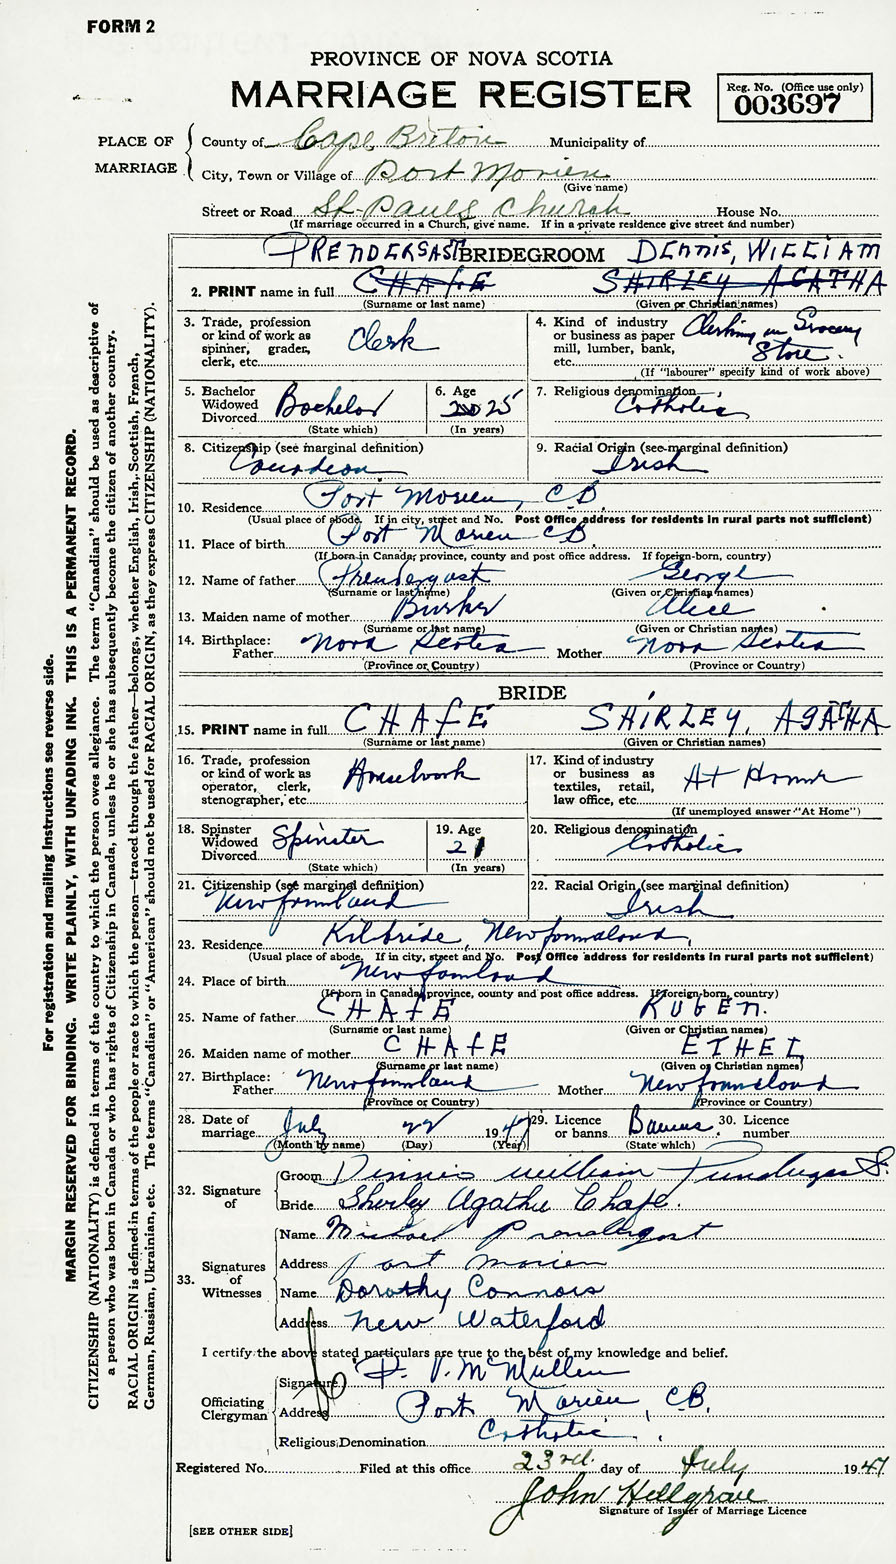 FORM 2
PROVINCE OF NOVA SCOTIA
MARRIAGE REGISTER
Reg. No. (Office use only)
003697
PLACE OF MARRIAGE
County of Cape Breton Municipality of
City, Town or Village of Port Morien
(Give name)
Street or Road St. Pauls Church House No.
(If marriage occurred in a Church, give name. If in a private residence give street and number)
PRENDERGAST BRIDEGROOM DENNIS, WILLIAM
2. PRINT name in full CHAFE SHIRLEY AGATHA
(Surname or last name) (Given or Christian names)
3. Trade, profession or kind of work as spinner, grader, clerk, etc. Clerk
4. Kind of industry or business as paper mill, lumber, bank, etc. Clerking in Grocery Store.
(If "labourer" specify kind of work above)
5. Bachelor Widowed Divorced Bachelor
(State which)
6. Age 25
(In years)
7. Religious denomination Catholic
8. Citizenship (see marginal definition) Canadian
9. Racial Origin (see marginal definition) Irish
10. Residence Port Morien, C.B.
(Usual place of abode. If in city, street and No. Post Office address for residents in rural parts not sufficient)
11. Place of birth Port Morien C.B.
(If born in Canada, province, county and post office address. If foreign-born, country)
12. Name of father Prendergast George
(Surname or last name) (Given or Christian names)
13. Maiden name of mother Burke Alice
(Surname or last name) (Given or Christian names)
14. Birthplace: Father Nova Scotia Mother Nova Scotia
(Province or Country) (Province or Country)
BRIDE
15. PRINT name in full CHAFE SHIRLEY, AGATHA
(Surname or last name) (Given or Christian names)
16. Trade, profession or kind of work as operator, clerk, stenographer, etc. Housework
17. Kind of industry or business as textiles, retail, law office, etc. At Home
(If unemployed answer "At Home")
18. Spinster Widowed Divorced Spinster
(State which)
19. Age 21
(In years)
20. Religious denomination Catholic
21. Citizenship (see marginal definition) Newfounland
22. Racial Origin (see marginal definition) Irish
23. Residence Kilbride, Newfounaland,
(Usual place of abode. If in city, street and No. Post Office address for residents in rural parts not sufficient)
24. Place of birth Newfounland
(If born in Canada, province, county and post office address. If foreign-born, country)
25. Name of father CHAFE RUBEN.
(Surname or last name) (Given or Christian names)
26. Maiden name of mother CHAFE ETHEL
(Surname or last name) (Given or Christian names)
27. Birthplace: Father Newfounland Mother Newfounaland
(Province or Country) (Province or Country)
28. Date of marriage July 22 1947
(Month by name) (Day) (Year)
29. Licence or banns Banns
(State which)
30. Licence number
32. Signature of
Groom Dennis William Prendergast
Bride Shirley Agatha Chafe.
33. Signatures of Witnesses
Name Michael Prendergast
Address Port Morien
Name Dorothy Connors
Address New Waterford
I certify the above stated particulars are true to the best of my knowledge and belief.
Officiating Clergyman
Signature McMullen
Address Port Morien, C.B.
Religious Denomination Catholic
Registered No. Filed at this office 23rd. day of July 1947
John Hellgrove
Signature of Issuer of Marriage Licence
[SEE OTHER SIDE]
For registration and mailing instructions see reverse side.
MARGIN RESERVED FOR BINDING. WRITE PLAINLY, WITH UNFADING INK. THIS IS A PERMANENT RECORD.
CITIZENSHIP (NATIONALITY) is defined in terms of the country to which the person owes allegiance. The term "Canadian" should be used as descriptive of
a person who was born in Canada or who has rights of Citizenship in Canada, unless he or she has subsequently become the citizen of another country.
RACIAL ORIGIN is defined in terms of the people or race to which the person—traced through the father—belongs, whether English, Irish, Scottish, French,
German, Russian, Ukrainian, etc. The terms "Canadian" or "American" should not be used for RACIAL ORIGIN, as they express CITIZENSHIP (NATIONALITY).